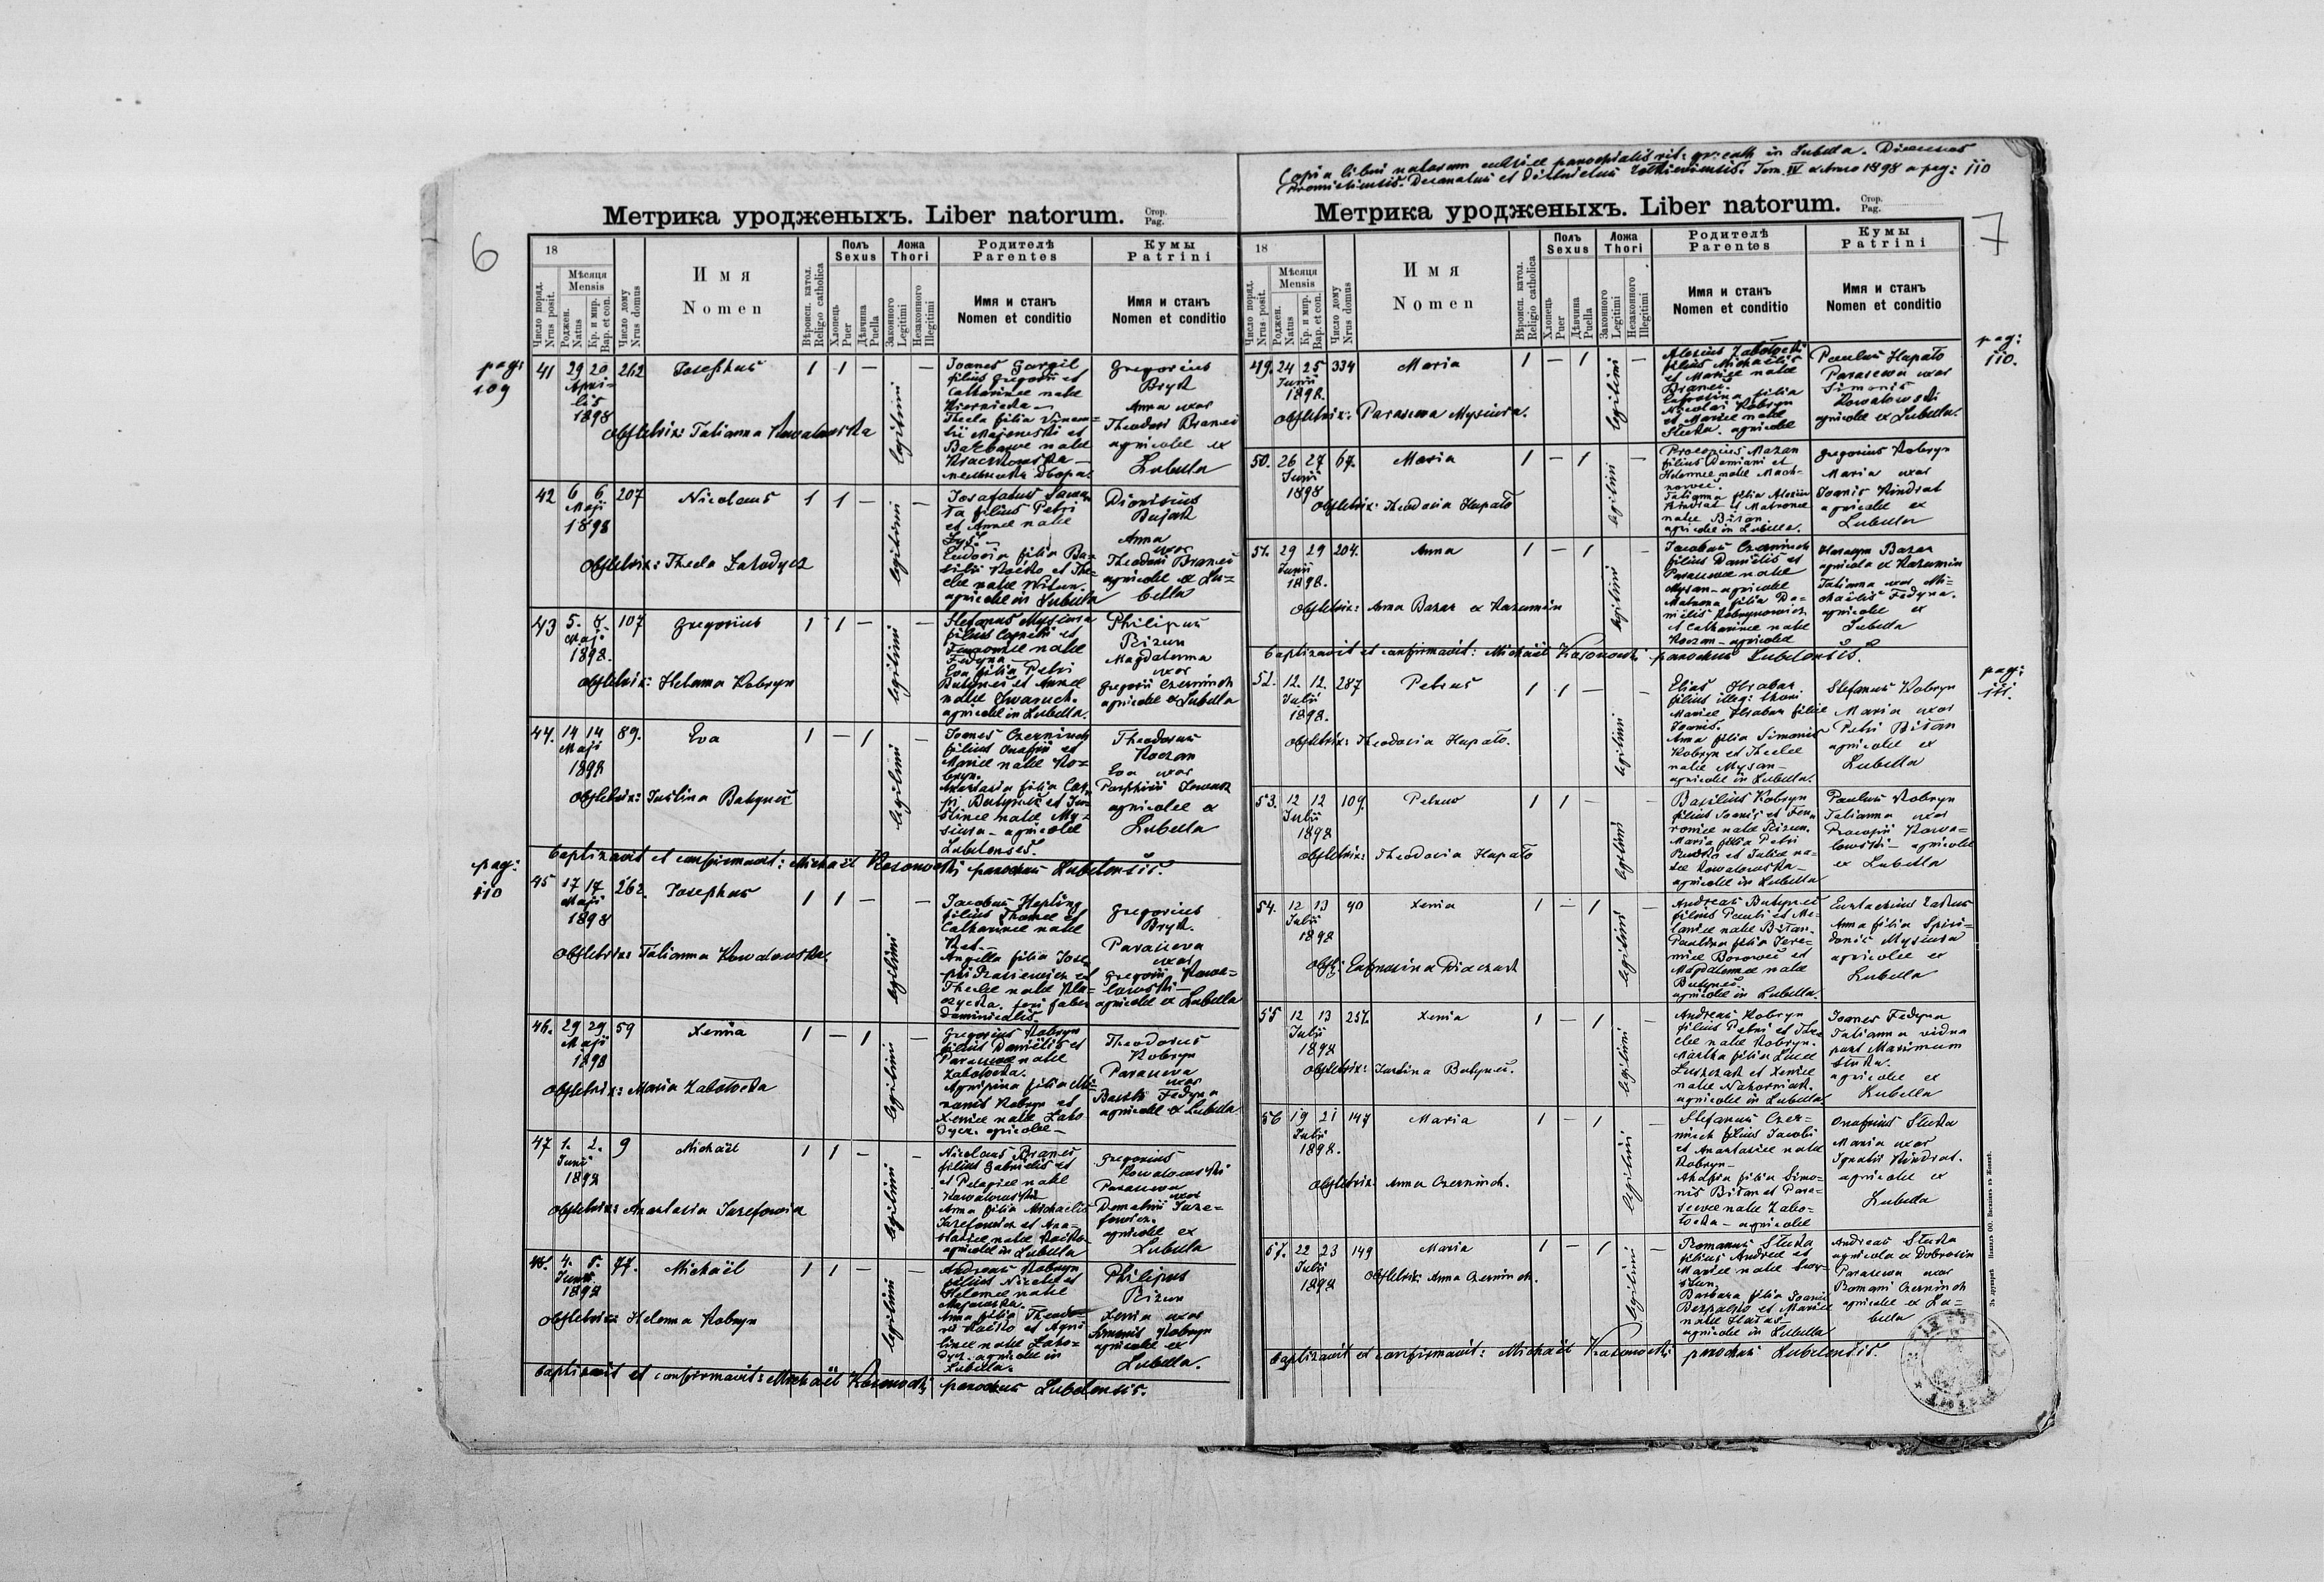 6
Метрика уродженыхъ. Liber natorum. Стор. Pag.
18
Число поряд. Nrus posit.
Мѣсяця Mensis
Роджен. Natus
Кр. и мир. Bap. et con.
Число дому Nrus domus
Имя
Nomen
Вѣроисп. катол. Religio catholica
Полъ Sexus
Хлопець Puer
Дѣвчина Puella
Ложа Thori
Законного Legitimi
Незаконного Illegitimi
Родителѣ Parentes
Имя и станъ Nomen et conditio
Кумы Patrini
Имя и станъ Nomen et conditio
pag: 109
41 29 20 Aprilis 1898 262 Josephus 1 1 — legitimi —
Joanes Gargil
filius Gregorii et
Catharinae natae
Thecla filia
Majewski et
natae
Gregorius
Bryk
Anna uxor
Theodori Branei
agricolae ex
Lubella
Obstetrix: Tatianna Kowalowska
42 6 6 Maji 1898 207 Nicolaus 1 1 — legitimi —
filius Petri
et Annae natae
Eudocia filia Ba-
silii Kościo et The-
clae natae
agricolae in Lubella
Dionisius
Bujak
Anna
uxor
Theodori Branei
agricolae ex Lu-
bella
Obstetrix: Thecla Zahodycz
43 5. 8. Maji 1898. 107 Gregorius 1 1 — legitimi —
Stefanus Mysiura
filius et
natae
Fedyna
Eva filia Petri
Butynei et Annae
natae Iwaruch.
agricolae in Lubella.
Philipus
Bizun
Magdalenna
uxor
Gregorii Czerninch
agricolae ex Lubella
Obstetrix: Helenna Kobryn
44. 14 14 Maji 1898 89. Eva 1 — 1 legitimi —
Joanes Czerninch
filius Onufrii et
Mariae natae Ko-
bryn.
Anastasia filia
Butynei et Ju-
stinae natae My-
siura — agricolae
Lubelenses.
Theodorus
Koczan
Eva uxor
agricolae ex
Lubella
Obstetrix: Justina Butynei
Baptizavit et confirmavit: Michaël Kosonocki parochus Lubelensis.
pag: 110
45 17 17 Maji 1898 262. Josephus 1 1 — legitimi —
Jacobus Hepting
filius Thomae et
Catharinae natae
Angella filia Jose-
phi et
Theclae natae
faber
dominicalis.
Gregorius
Bryk.
Parasceva
uxor
Gregorii Kowa-
lowski —
agricolae ex Lubella
Obstetrix: Tatianna Kowalowska
46. 29 29 Maji 1898 59 Xenia 1 — 1 legitimi —
Gregorius Kobryn
filius Danielis et
Parascevae natae
Zabołocka.
Agripina filia
Kobryn et
Xeniae natae Zaho-
dycz. agricolae —
Theodorus
Kobryn
Parasceva
uxor
Fedyna
agricolae ex Lubella
Obstetrix: Maria Zabołocka
47 1. 2. Junii 1898 9 Michaël 1 1 — legitimi —
Nicolaus Branei
filius Gabrielis et
et Pelagiae natae
Kowalowska
Anna filia Michaelis
Juzefowicz et Ana-
stasiae natae Kościo
agricolae in Lubella
Gregorius
Kowalowski
Parasceva
uxor
Juze-
fowicz.
agricolae ex
Lubella
Obstetrix: Anastasia Juzefowicz
48. 4. 5. Junii 1898 77. Michaël 1 1 — legitimi —
Andreas Kobryn
filius Nicolai et
Helenae natae
Majewska.
Anna filia Theodo-
ri Kościo et
natae Zaho-
dycz. agricolae in
Lubella.
Philipus
Bizun
Xenia uxor
Simonis Kobryn
agricolae ex
Lubella.
Obstetrix: Helenna Kobryn
Baptizavit et confirmavit: Michaël Kosonocki parochus Lubelensis.
Copia libri natorum ecclesiae parochialis rit: gr: cath in Lubella. Dioeceseos
Premisliensis. Decanatus et Districtus Zołkieviensis. Tom. IV ex Anno 1898 a pag: 110
7
Метрика уродженыхъ. Liber natorum. Стор. Pag.
18
Число поряд. Nrus posit.
Мѣсяця Mensis
Роджен. Natus
Кр. и мир. Bap. et con.
Число дому Nrus domus
Имя
Nomen
Вѣроисп. катол. Religio catholica
Полъ Sexus
Хлопець Puer
Дѣвчина Puella
Ложа Thori
Законного Legitimi
Незаконного Illegitimi
Родителѣ Parentes
Имя и станъ Nomen et conditio
Кумы Patrini
Имя и станъ Nomen et conditio
pag: 110.
49. 24 25 Junii 1898. 334 Maria 1 — 1 legitimi —
Alexius Zabołocki
filius Michaelis
et Mariae natae
Branei.
Eufrosina filia
Nicolai Kobryn
et Mariae natae
Słucka. agricolae
Paulus Hapało
Parasceva uxor
Simonis
Kowalowski
agricolae ex Lubella.
Obstetrix: Parasceva Mysiura.
50. 26 27 Junii 1898 67. Maria 1 — 1 legitimi —
Procopius Mazan
filius Damiani et
Helennae natae
Tatianna filia Alexii
Kindrat et Matronae
natae Biłan.
agricolae in Lubella.
Gregorius Kobryn
Maria uxor
Joanis Kindrat
agricolae ex
Lubella
Obstetrix: Theodosia Hapało
51. 29 29 Junii 1898. 204. Anna 1 — 1 legitimi —
Jacobus Czerninch
filius Danielis et
Parascevae natae
Mysan — agricolae
Matrona filia Da-
nielis Kobrynowicz
et Catharinae natae
Koczan — agricolae
Bazar
agricola ex Kazumin
Tatianna uxor Mi-
chaëlis Fedyna.
agricolae ex
Lubella
Obstetrix: Anna Bazar ex Kazumin
Baptizavit et confirmavit: Michaël Kosonocki parochus Lubelensis.
pag: 111.
52. 12. 12. Julii 1898. 287 Petrus 1 1 — legitimi —
Elias Hrabar
filius illegi: thori
Mariae Hrabar filiae
Joanis.
Anna filia Simonis
Kobryn et Theclae
natae Mysan —
agricolae in Lubella.
Stefanus Kobryn
Maria uxor
Petri Biłan
agricolae ex
Lubella
Obstetrix: Theodosia Hapało.
53. 12 12 Julii 1898 109. Petrus 1 1 — legitimi —
Basilius Kobryn
filius Joanis et Feu-
roniae natae Bizun.
Maria filia Petri
et Juliae na-
tae Kowalowska —
agricolae in Lubella
Paulus Kobryn
Tatianna uxor
Procopii Kowa-
lowski — agricolae
ex Lubella
Obstetrix: Theodosia Hapało
54. 12 13 Julii 1898 90 Xenia 1 — 1 legitimi —
Andreas Butynei
filius Pauli et Me-
laniae natae Biłan.
Paulina filia Jere-
miae Borowei et
Magdalennae natae
Butynei.
agricolae in Lubella.
Eustachius
Anna filia Spiri-
donis Mysiura
agricolae ex
Lubella
Obst: Eufrosina Diaczuk
55 12 13 Julii 1898 257. Xenia 1 — 1 legitimi —
Andreas Kobryn
filius Petri et The-
clae natae Kobryn.
Martha filia Lucae
Łuszczak et Xeniae
natae Nakorniak.
agricolae in Lubella.
Joanes Fedyna
Tatianna vidua
post Maximum
Słucka.
agricolae ex
Lubella
Obstetrix: Justina Butynei.
56 19 21 Julii 1898. 147 Maria 1 — 1 legitimi —
Stefanus Czer-
ninch filius Jacobi
et Anastasiae natae
Kobryn —
Akafia filia Simo-
nis Biłan et Para-
scevae natae Zabo-
łocka — agricolae
Onufrius Słucka
Maria uxor
Ignatii Kindrat.
agricolae ex
Lubella
Obstetrix: Anna Czerninch.
57. 22 23 Julii 1898 149 Maria 1 — 1 legitimi —
Romanus Słucka
filius Andreae et
Mariae natae
Barbara filia Joanis
Bezpalko et Mariae
natae Haras —
agricolae in Lubella
Andreas Słucka
agricola ex Dobrosin
Parasceva uxor
Romani Czerninch
agricolae ex Lu-
bella
Obstetrix: Anna Czerninch.
Baptizavit et confirmavit: Michaël Kosonocki parochus Lubelensis.